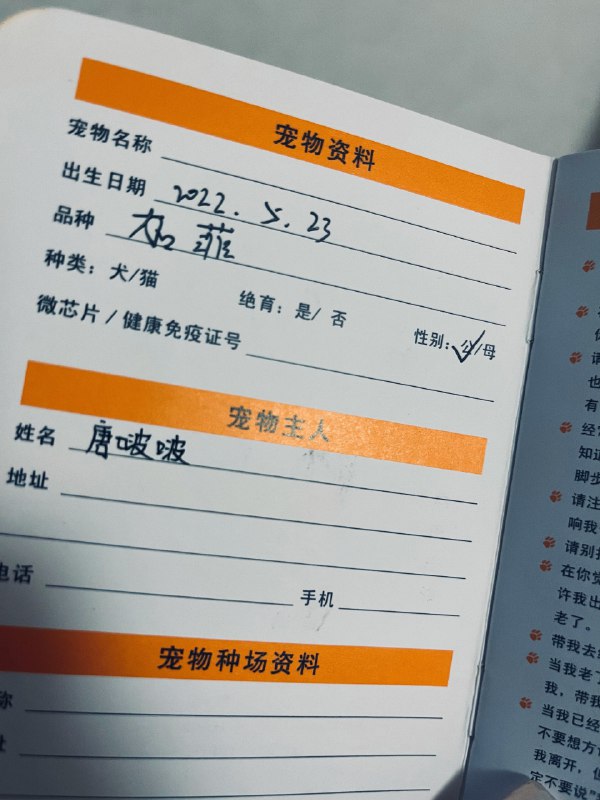 宠物资料
宠物名称
出生日期 2022.5.23
品种 加菲
种类：犬/猫 绝育：是/否 性别：公/母
微芯片/健康免疫证号
宠物主人
姓名 唐啵啵
地址
电话 手机
宠物种场资料
称
址
也
有
经常
知道
脚步
请注
响我
请别把
在你觉
许我出
老了。
带我去
当我老了
我，带我
当我已经
不要想方
我离开，但
定不要说"